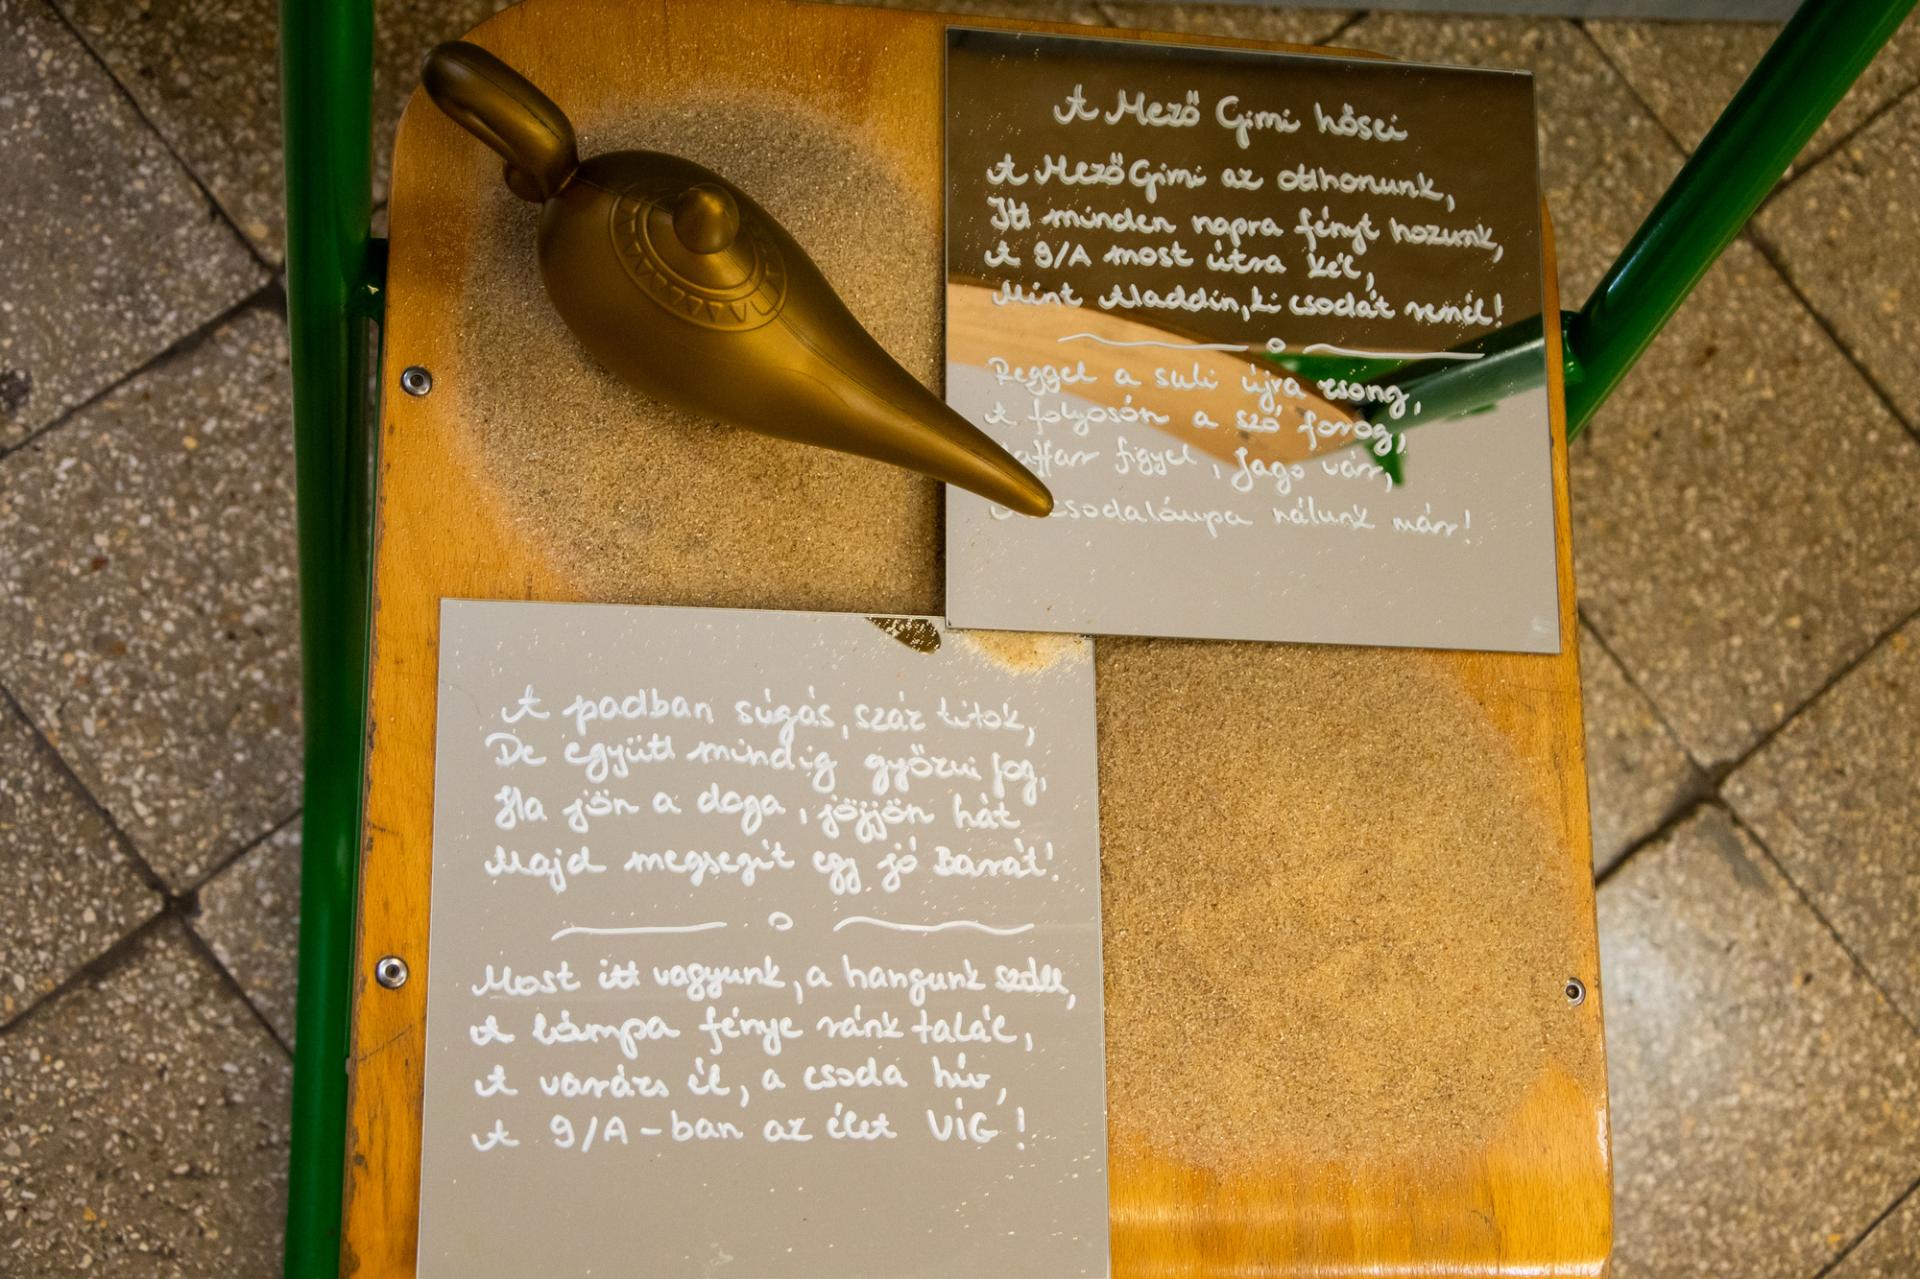 A Mező Gimi hősei
A Mező Gimi az otthonunk,
Itt minden napra fényt hozunk,
A 9/A most útra kél,
Mint Aladdin, ki csodát remél!
Reggel a suli újra zsong,
A folyosón a szó forog,
Jaffar figyel, Jago vár,
A csodalámpa nálunk már!
A padban súgás, száz titok,
De együtt mindig győzni fog,
Ha jön a doga, jöjjön hát
Majd megsegít egy jó Barát!
Most itt vagyunk, a hangunk száll,
A lámpa fénye ránk talál,
A varázs él, a csoda hív,
A 9/A-ban az élet VÍG!